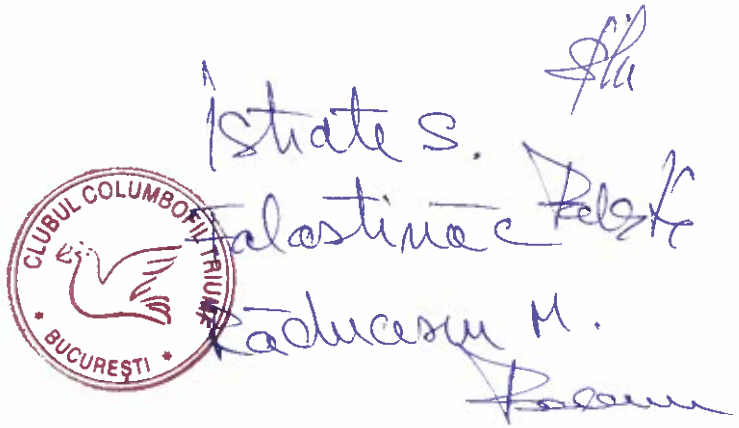 Istrate S.
Falastinac
Răducescu M.
CLUBUL COLUMBOFIL TRIUMF
* BUCUREȘTI *